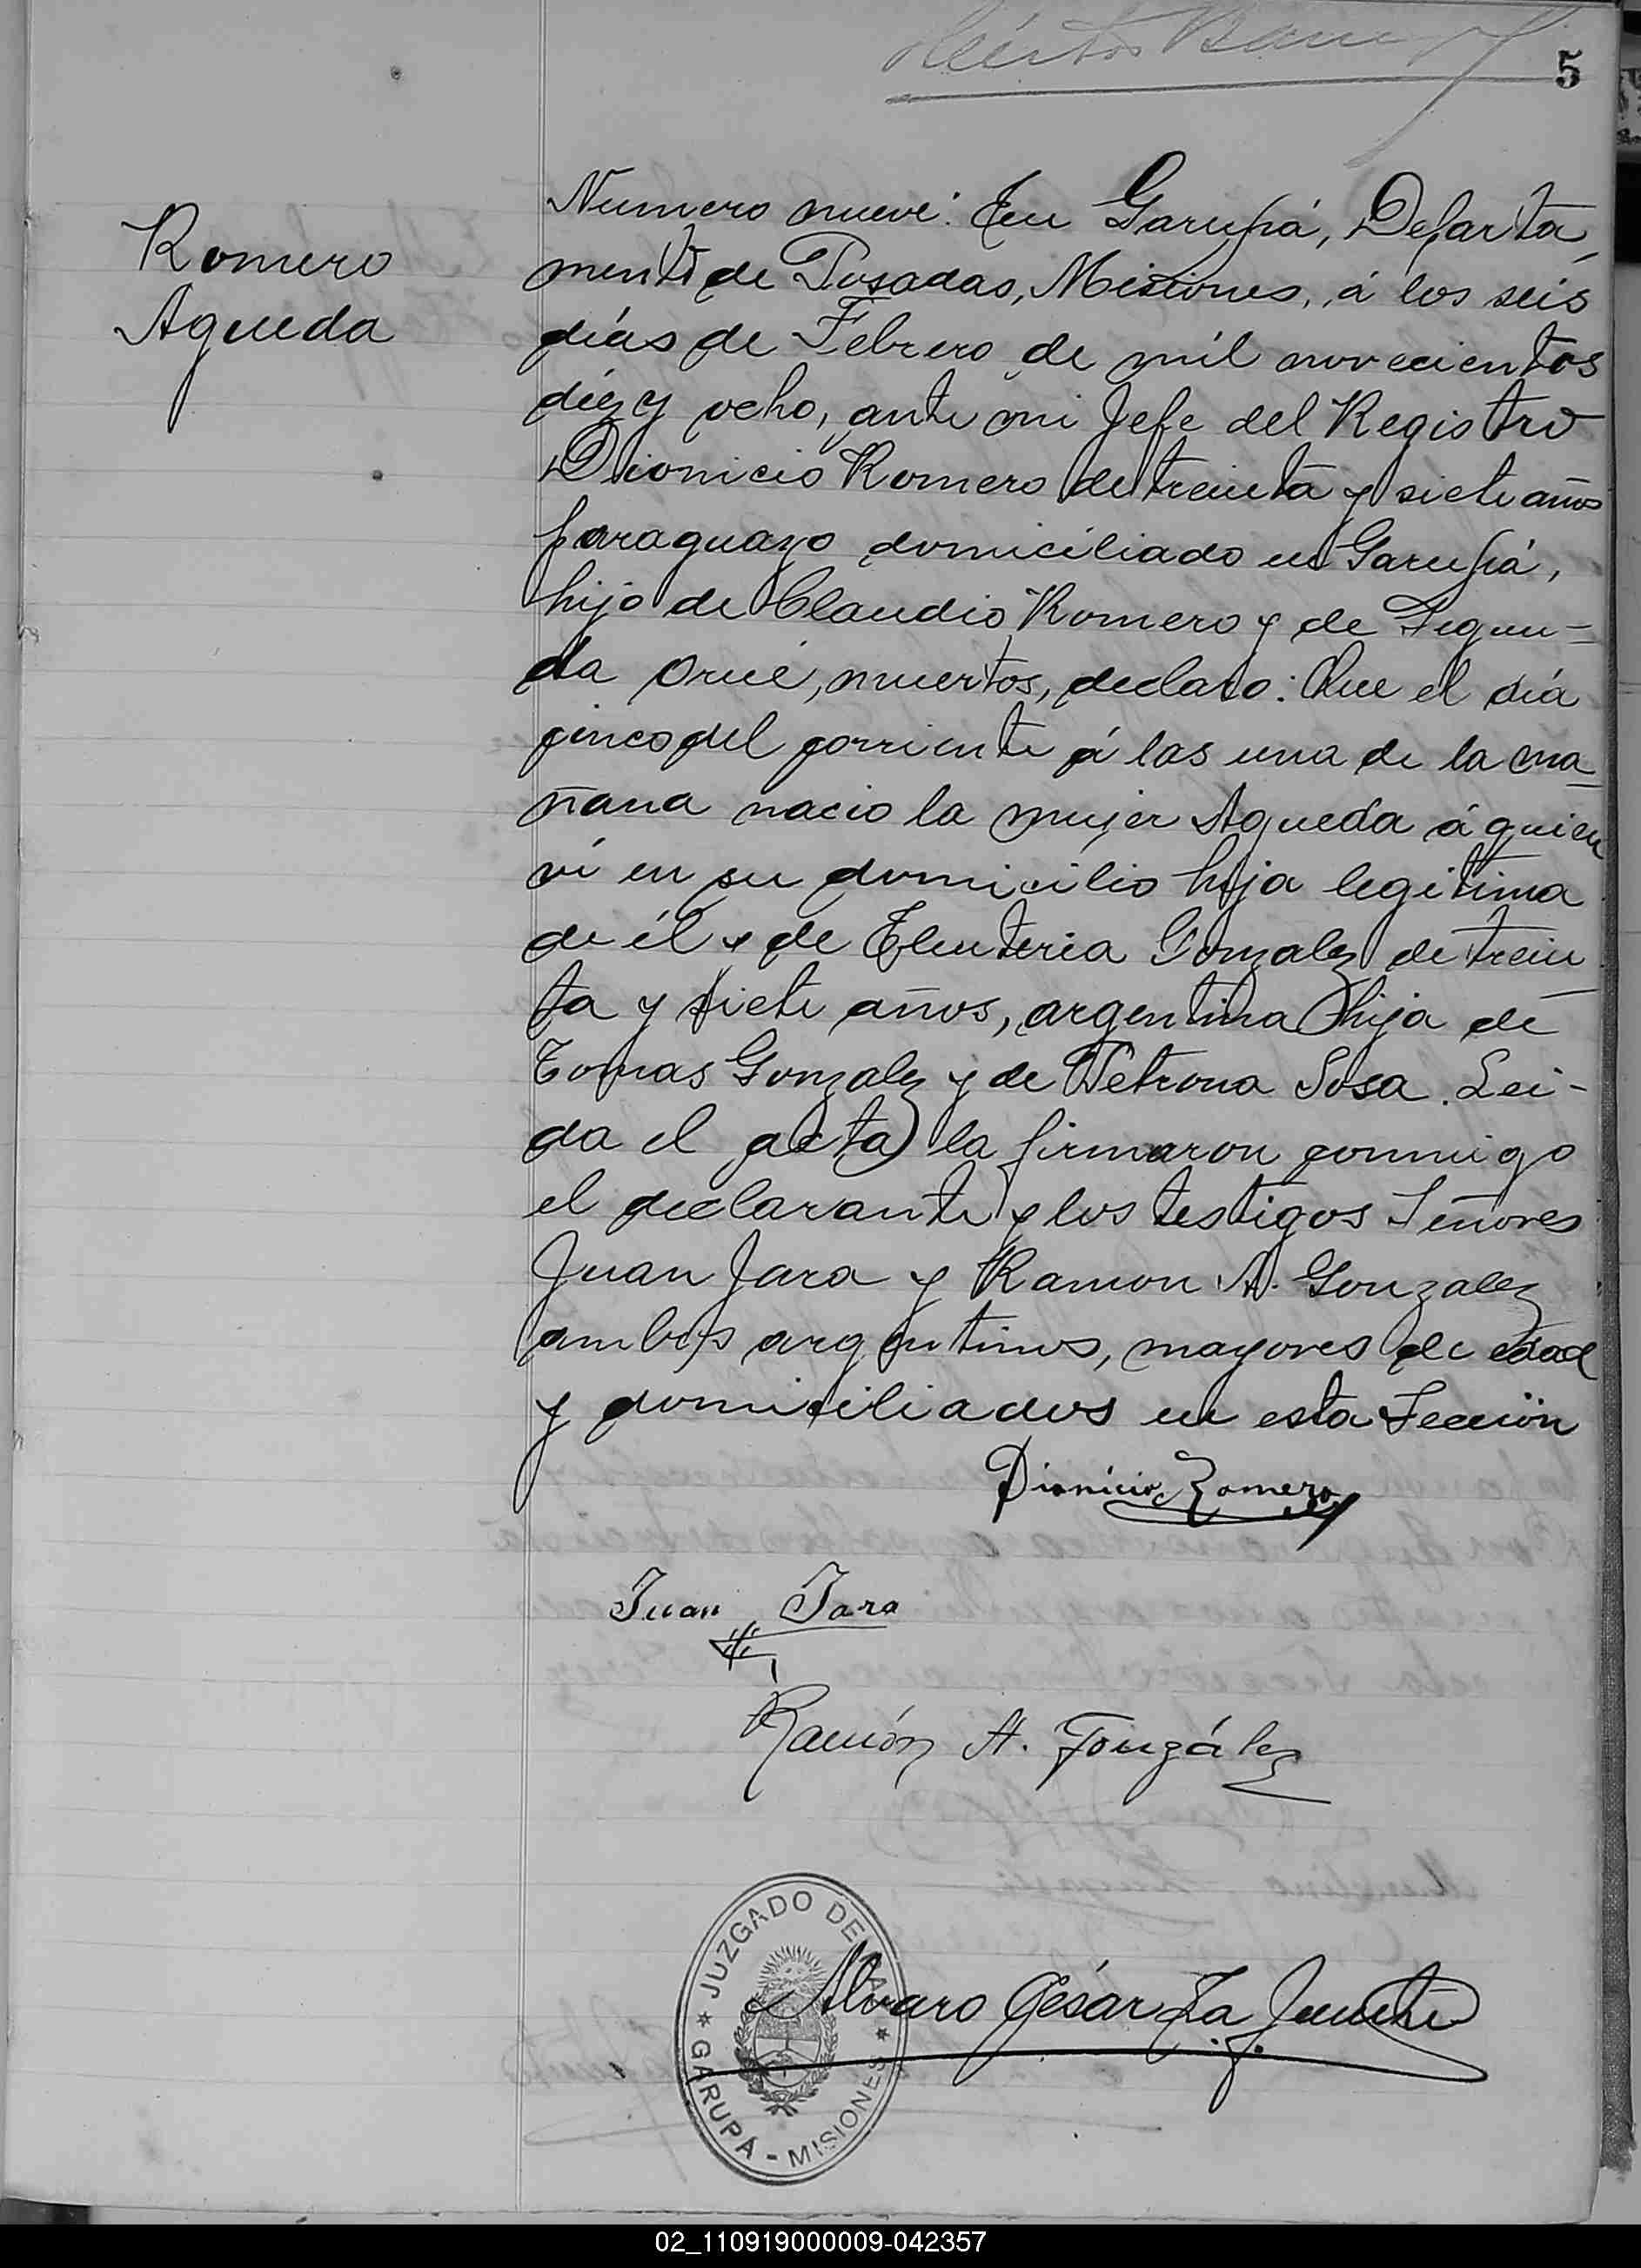 5
Romero
Agueda
Numero nueve: En Garupá, Departa-
mento de Posadas, Misiones, á los seis
días de Febrero de mil novecientos
diéz y ocho, ante mi Jefe del Registro
Dionicio Romero de treinta y siete años
paraguayo domiciliado en Garupá,
hijo de Claudio Romero y de Segun-
da Orué, muertos, declaro: Que el día
cinco del corriente á las una de la ma-
ñana nacio la mujer Agueda á quien
ví en su domicilio hija legitima
de él y de Eleuteria Gonzalez de trein-
ta y siete años, argentina hija de
Tomas Gonzalez y de Petrona Sosa. Lei-
da el acta la firmaron conmigo
el declarante y los testigos Señores
Juan Jara y Ramon A. Gonzalez
ambos argentinos, mayores de edad
y domiciliados en esta Sección
Dionicio Romero
Juan Jara
Ramón A. González
JUZGADO DE PAZ
Alvaro César La Fuente
GARUPÁ - MISIONES
02_110919000009-042357